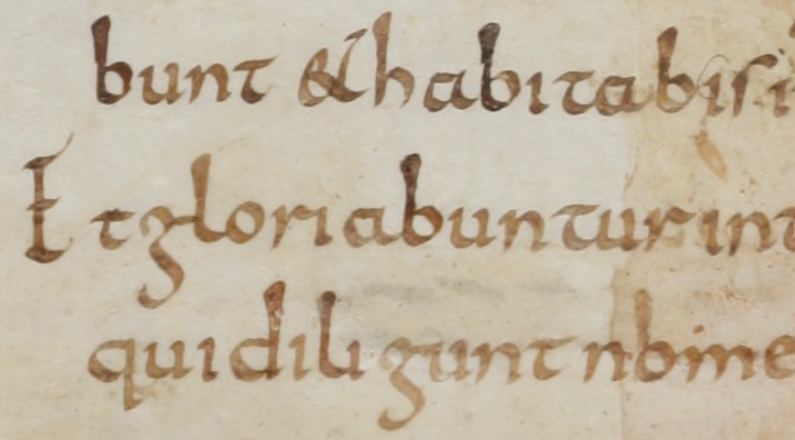 bunt & habitabis i
Et gloriabuntur int
qui diligunt nome